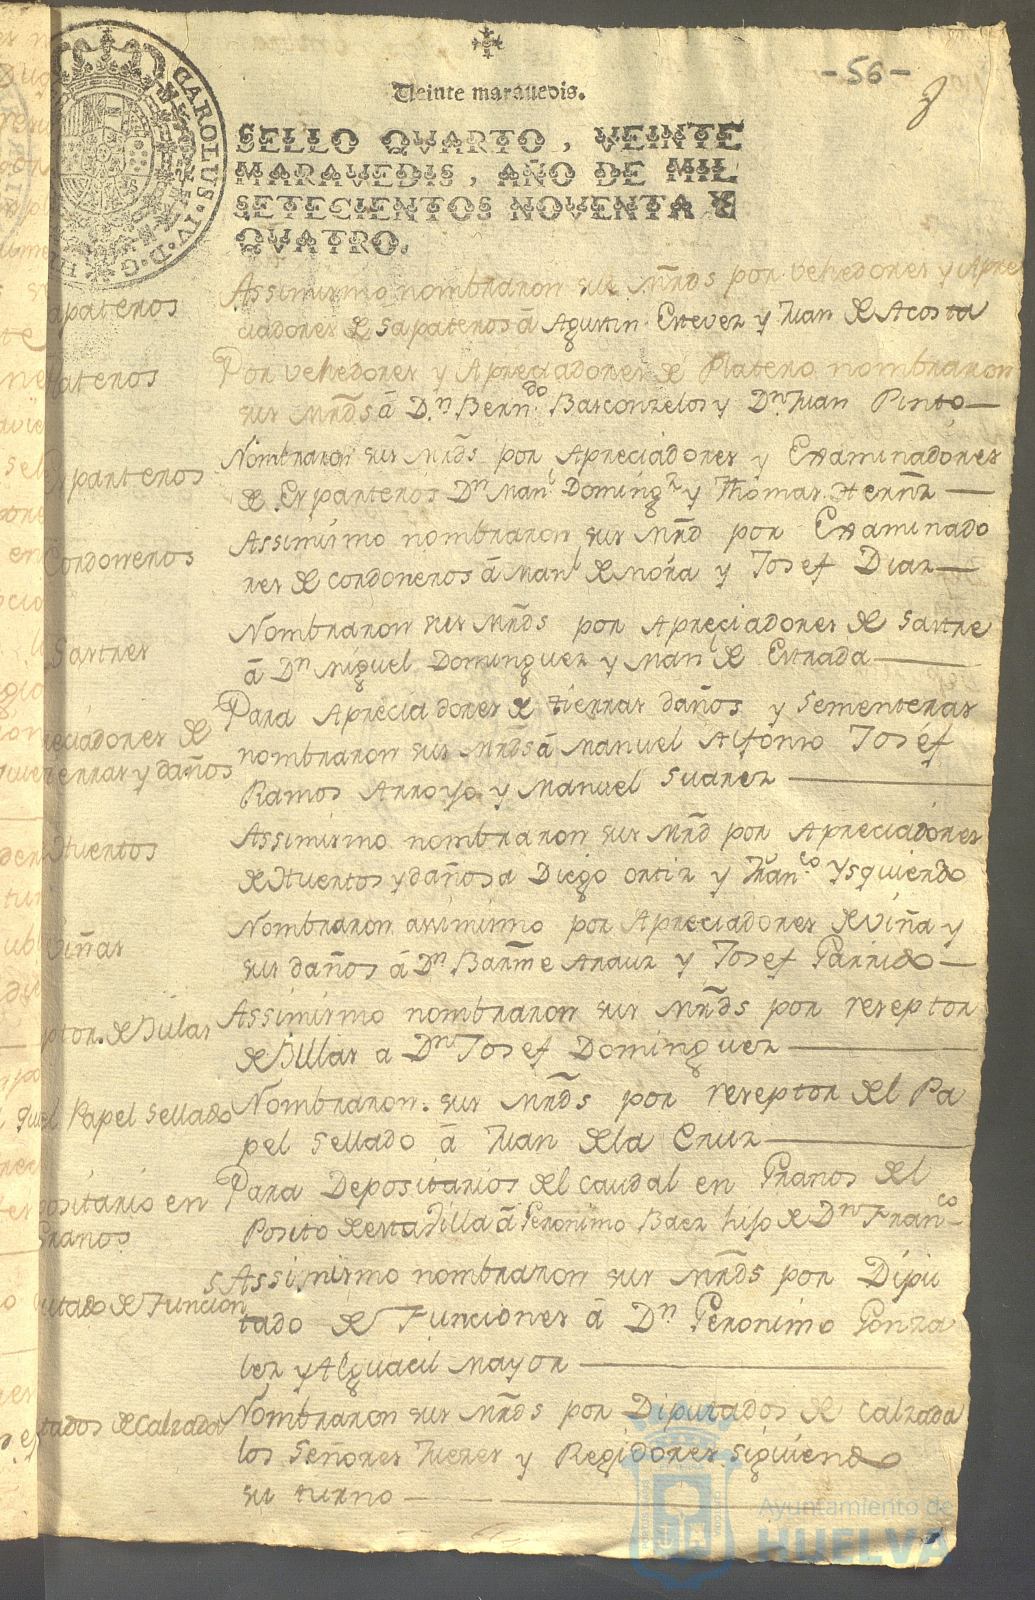 -56-
Veinte marauedis.
SELLO QVARTO, VEINTE
MARAVEDIS, AÑO DE MIL
SETECIENTOS NOVENTA Y
QVATRO.
CAROLUS·IV·D·G·H
apateros
Assimismo nombraron sus Mrds por vehedores y Apre
ciadores de Sapateros á Agustin Estevez y Juan de Acosta
lateros
Por vehedores y Apreciadores de Platero nombraron
sus Mrds á Dn. Berndo. Basconzelos y Dn. Juan Pinto
sparteros
Nombraron sus Mrds por Apreciadores y Examinadores
de Esparteros Dn Manl Domingz y Thomas Hernz
Cordoneros
Assimismo nombraron sus Mrd por Examinado
res de cordoneros á Manl de Mora y Josef Diaz
Sastres
Nombraron sus Mrds por Apreciadores de Sastre
á Dn Miguel Dominguez y Manl de Estrada
reciadores de
tierras y daños
Para Apreciadores de tierras daños y Sementeras
nombraron sus Mrds á Manuel Alfonso Josef
Ramos Arroyo y Manuel Suarez
Huertos
Assimismo nombraron sus Mrd por Apreciadores
de Huertos y daños a Diego Ortiz y Franco. Ysquierdo
Viñas
Nombraron assimismo por Apreciadores de viña y
sus daños á Dn Barme Arauz y Josef Garrido
ptor. de Bulas
Assimismo nombraron sus Mrds por reseptor
de Bullas a Dn Josef Dominguez
el Papel Sellado
Nombraron sus Mrds por reseptor del Pa
pel Sellado á Juan de la Cruz
positario en
Granos
Para Depositarios del caudal en Granos del
Posito de esta Villa á Geronimo Baez hijo de Dn Franco
utado de Funcion
Assimismo nombraron sus Mrds por Dipu
tado de Funciones á Dn Geronimo Gonza
lez y Alguacil Mayor
tados de Calzada
Nombraron sus Mrds por Diputados de calzada
los Señores Jueses y Regidores siguiendo
su turno
Ayuntamiento de
HUELVA